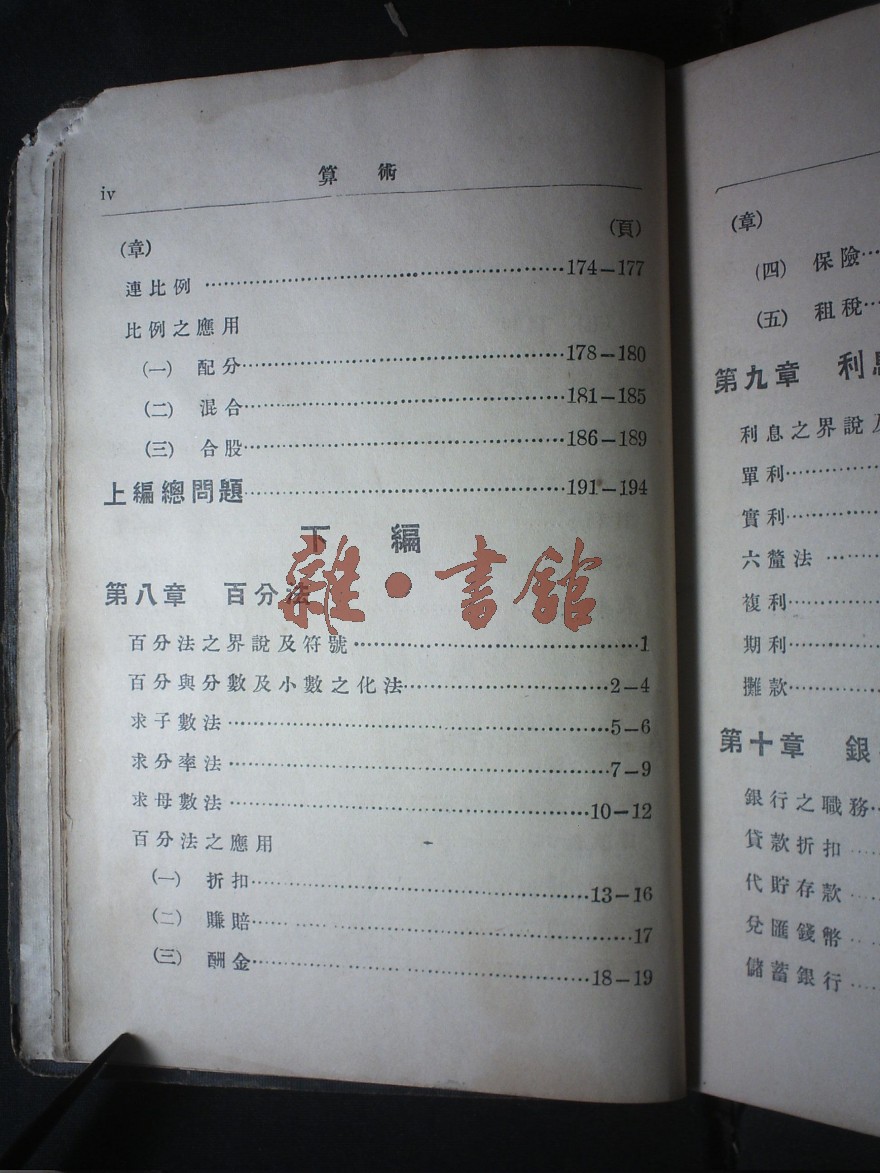 iv 算術
(章) (頁)
連比例……174—177
比例之應用
(一) 配分……178—180
(二) 混合……181—185
(三) 合股……186—189
上編總問題……191—194
下編
第八章 百分法
雜·書館
百分法之界說及符號……1
百分與分數及小數之化法……2—4
求子數法……5—6
求分率法……7—9
求母數法……10—12
百分法之應用
(一) 折扣……13—16
(二) 賺賠……17
(三) 酬金……18—19
(章)
(四) 保險…
(五) 租稅…
第九章 利
利息之界說
單利……
實利……
六釐法……
複利……
期利……
攤款……
第十章 銀
銀行之職務…
貸款折扣……
代貯存款……
兌匯錢幣……
儲蓄銀行……